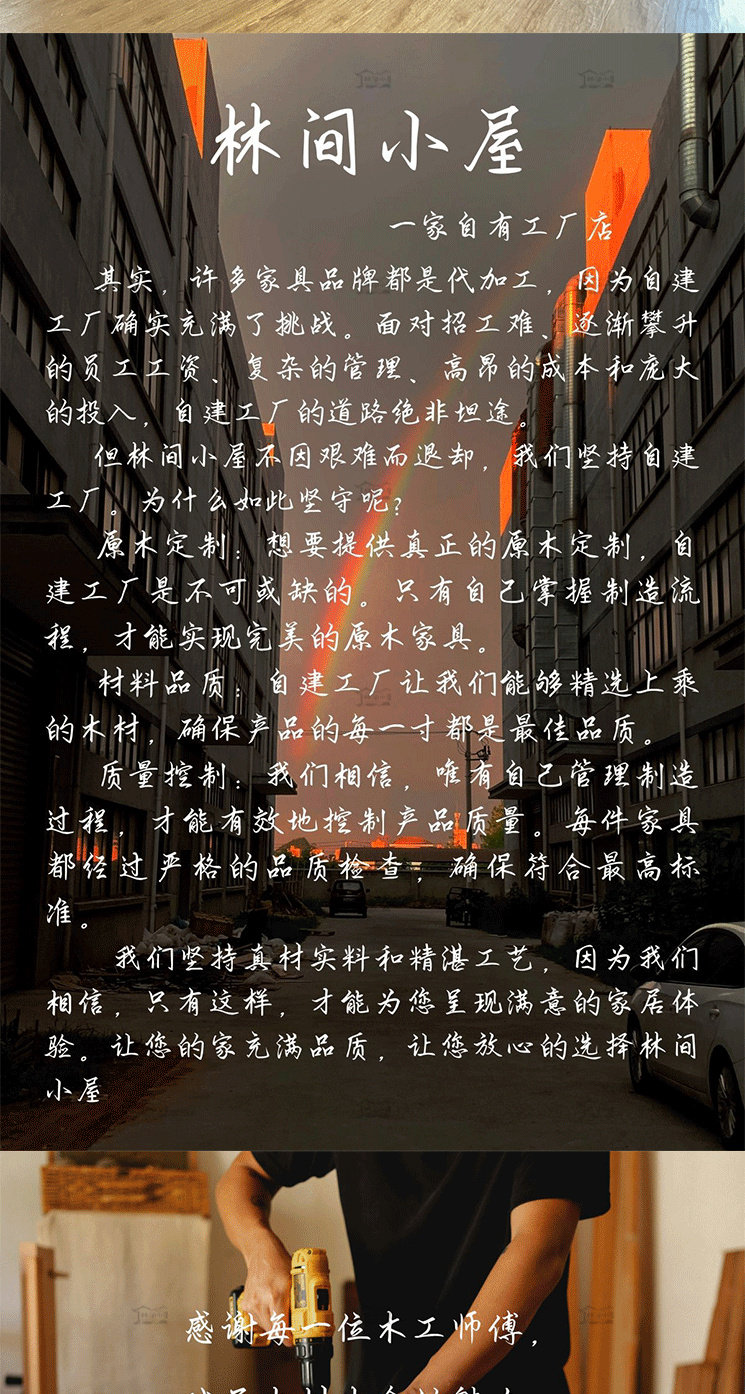 林间小屋
一家自有工厂店
其实，许多家具品牌都是代加工，因为自建
工厂确实充满了挑战。面对招工难、逐渐攀升
的员工工资、复杂的管理、高昂的成本和庞大
的投入，自建工厂的道路绝非坦途。
但林间小屋不因艰难而退却，我们坚持自建
工厂。为什么如此坚守呢？
原木定制：想要提供真正的原木定制，自
建工厂是不可或缺的。只有自己掌握制造流
程，才能实现完美的原木家具。
材料品质：自建工厂让我们能够精选上乘
的木材，确保产品的每一寸都是最佳品质。
质量控制：我们相信，唯有自己管理制造
过程，才能有效地控制产品质量。每件家具
都经过严格的品质检查，确保符合最高标
准。
我们坚持真材实料和精湛工艺，因为我们
相信，只有这样，才能为您呈现满意的家居体
验。让您的家充满品质，让您放心的选择林间
小屋
感谢每一位木工师傅，